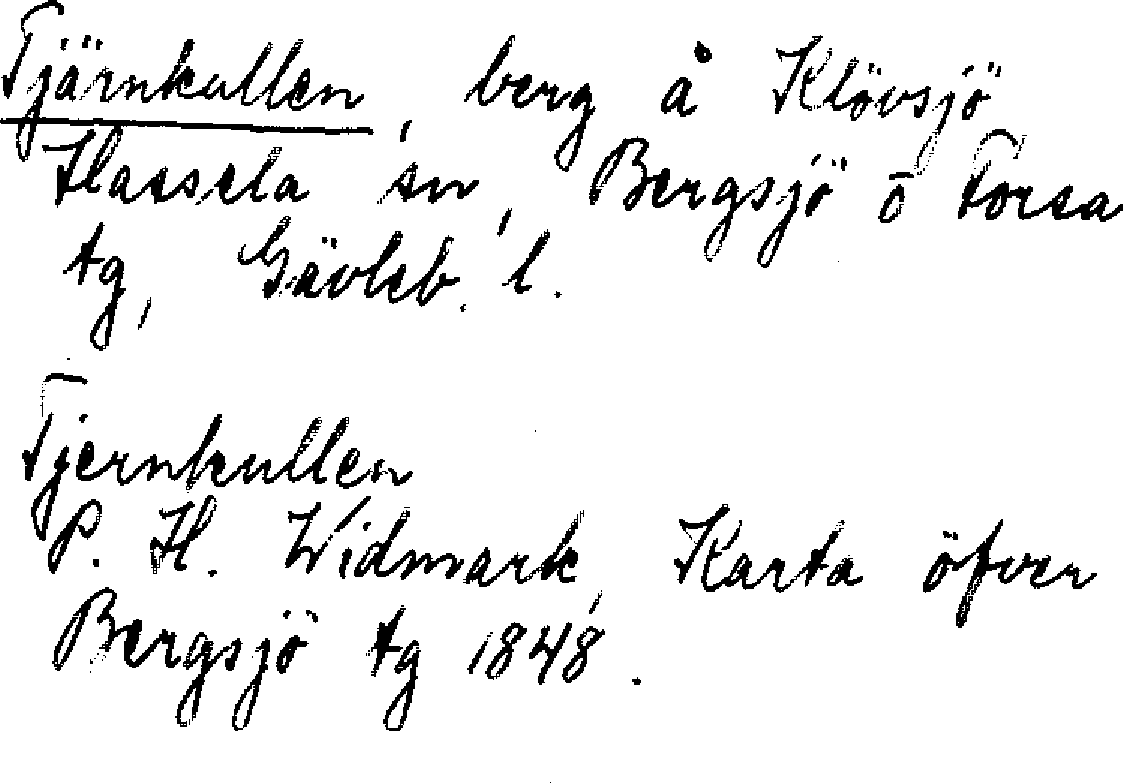 Tjärnkullen, berg å Klövsjö
Hassela sn, Bergsjö o Forsa
tg, Gävleb. l.
Tjernkullen
P. H. Widmark, Karta öfver
Bergsjö tg 1848.